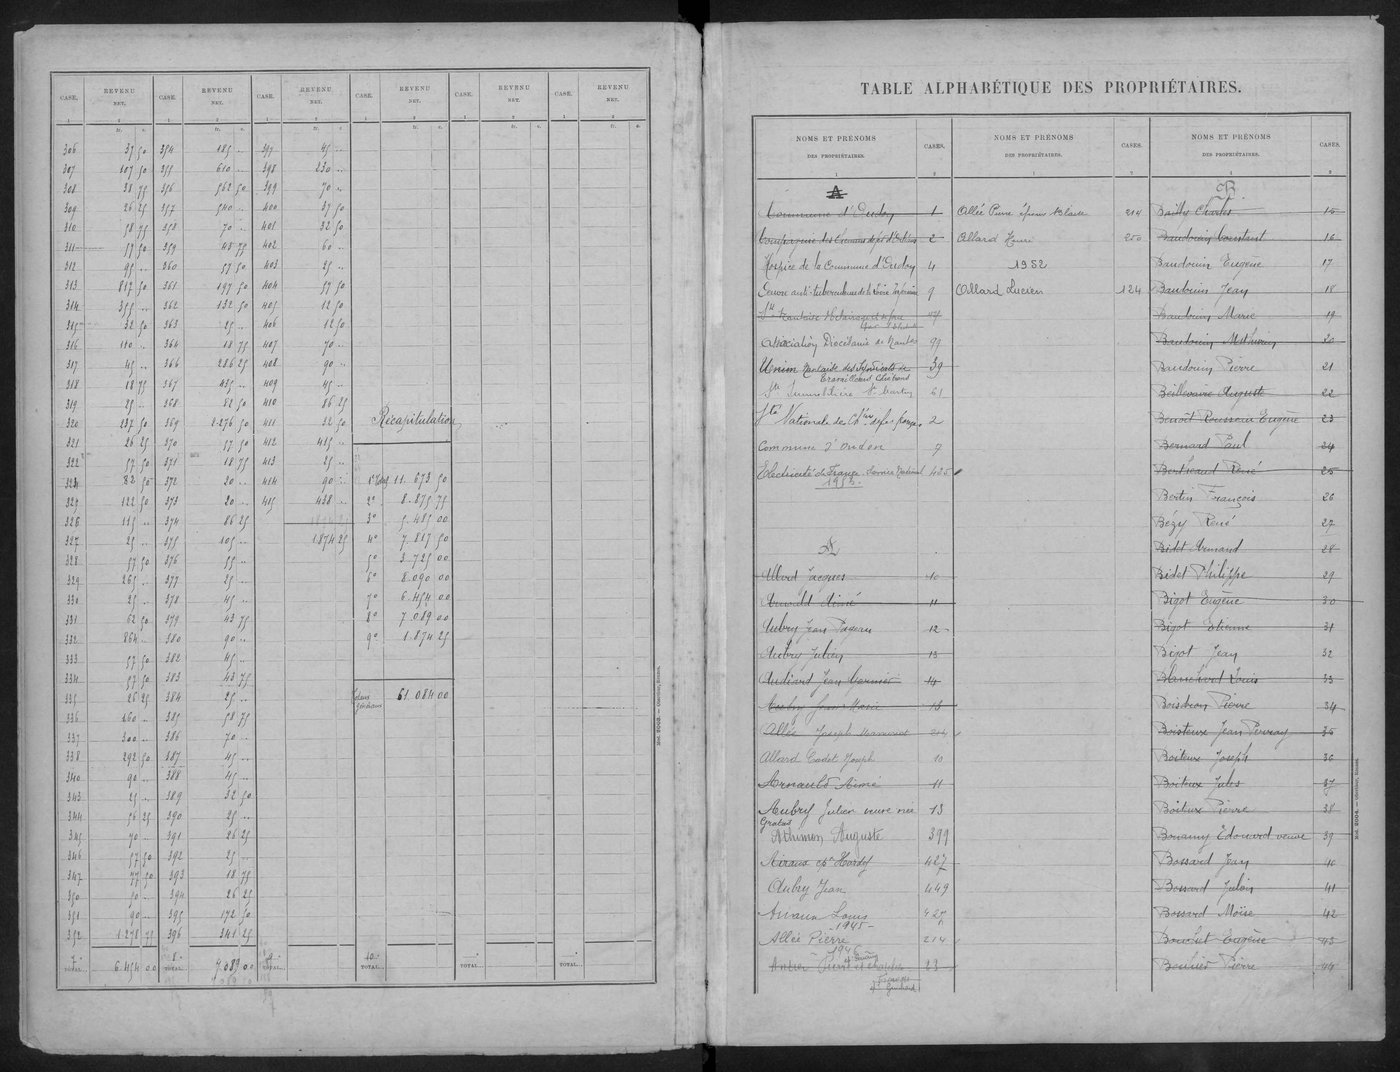 CASE. REVENU NET. CASE. REVENU NET. CASE. REVENU NET. CASE. REVENU NET. CASE. REVENU NET. CASE. REVENU NET.
1 2 1 2 1 2 1 2 1 2 1 2
fr. c. fr. c. fr. c. fr. c. fr. c. fr. c.
306 37 50 354 185 .. 397 45 ..
307 107 50 355 610 .. 398 230 ..
308 38 75 356 562 50 399 70 ..
309 26 25 357 540 .. 400 37 50
310 58 75 358 70 .. 401 32 50
311 57 50 359 45 75 402 60 ..
312 95 .. 360 57 50 403 25 ..
313 812 50 361 197 50 404 57 50
314 355 .. 362 132 50 405 12 50
315 32 50 363 25 .. 406 12 50
316 110 .. 364 18 75 407 70 ..
317 45 .. 366 286 25 408 90 ..
318 18 75 367 485 .. 409 45 ..
319 25 .. 368 82 50 410 86 25
320 237 50 369 2.276 50 411 32 50 Récapitulation
321 26 25 370 57 50 412 415 ..
322 57 50 371 18 75 413 25 ..
324 82 50 372 20 .. 414 90 .. 1° 11.673 50
325 122 50 373 20 .. 415 438 .. 2° 8.875 75
326 115 .. 374 86 25 3° 5.485 00
327 25 .. 375 105 .. 1.874 25 4° 7.817 50
328 57 50 376 55 .. 5° 3.725 00
329 265 .. 377 25 .. 6° 8.090 00
330 25 .. 378 45 .. 7° 6.454 00
331 62 50 379 43 75 8° 7.089 00
332 864 .. 380 90 .. 9° 1.874 25
333 57 50 382 45 ..
334 57 50 383 43 75
335 26 25 384 25 .. Totaux généraux 61.084 00
336 160 .. 385 58 75
337 300 .. 386 70 ..
338 292 50 387 45 ..
340 90 .. 388 45 ..
343 25 .. 389 32 50
344 56 25 390 25 ..
345 70 .. 391 26 25
346 57 50 392 25 ..
347 77 50 393 18 75
350 50 .. 394 26 25
351 90 .. 395 172 50
352 1.278 75 396 341 25
7° TOTAL.. 6.454 00 8° TOTAL.. 7.089 00 9° TOTAL.. 10° TOTAL.. TOTAL.. TOTAL..
TABLE ALPHABÉTIQUE DES PROPRIÉTAIRES.
NOMS ET PRÉNOMS DES PROPRIÉTAIRES. CASES. NOMS ET PRÉNOMS DES PROPRIÉTAIRES. CASES. NOMS ET PRÉNOMS DES PROPRIÉTAIRES. CASES.
A B
Commune d'Oudon 1 Allée Pierre 214 Charles 15
Compagnie des Chemins de fer d'Orléans 2 Allard Henri 250 Baudouin Constant 16
Hospice de la Commune d'Oudon 4 1952 Baudouin Eugène 17
Oeuvre anti-tuberculeuse de la Loire Inférieure 9 Allard Lucien 124 Baudouin Jean 18
Baudouin Marie 19
Association Diocésaine de Nantes 99 Baudouin Mathurin 20
Union Nantaise des Syndicats de 39 Baudouin Pierre 21
Travailleurs Chrétiens
Sté Immobilière St Martin 61 Beillevaire Auguste 22
Sté Nationale des Ch. de fer français 2 Benoît Rousseau Eugène 23
Commune d'Oudon 7 Bernard Paul 24
Electricité de France Service National 425 Bertheaud René 25
1952 Bertin François 26
Bézy René 27
A Bidet Armand 28
Allard Jacques 10 Bidet Philippe 29
Arnauld Aimé 11 Bigot Eugène 30
Aubry Jean 12 Bigot Etienne 31
Aubry Julien 13 Bigot Jean 32
Audiard Jean Garnier 14 Blanchard Louis 33
Pierre 34
Allée Joseph 214 Boiteux Jean Perray 35
Allard Cadet Joseph 10 Boiteux Joseph 36
Arnauld Aimé 11 Boiteux Jules 37
Aubry Julien veuve née 13 Boiteux Pierre 38
Gratas
Athimon Auguste 399 Bonamy Edouard veuve 39
427 Bossard Jean 40
Aubry Jean 449 Bossard Julien 41
Louis 427 Bossard Moïse 42
1945
Allée Pierre 214 Bouchet Eugène 43
1946
Pierre 23 Pierre 44